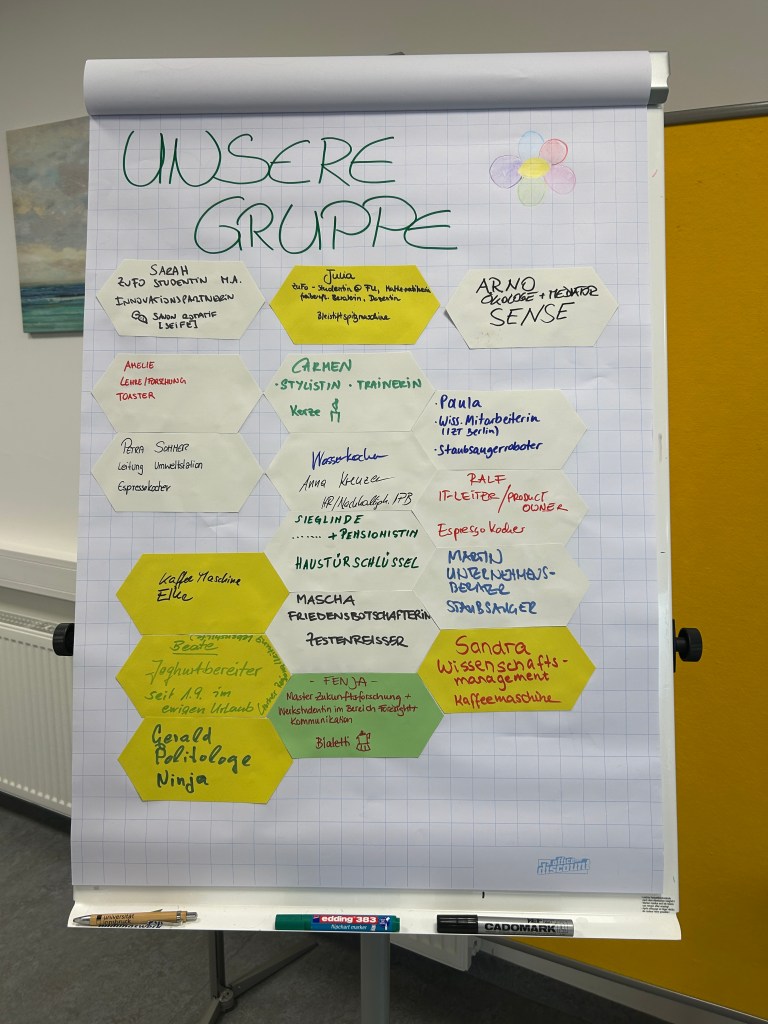 UNSERE
GRUPPE
SARAH
ZUFO STUDENTIN M.A.
INNOVATIONSPARTNERIN
SAVON ROTATIF
[SEIFE]
Julia
ZuFo-Studentin @ FU, Mathematikerin
freiberufl. Beraterin, Dozentin
Bleistiftspitzmaschine
ARNO
ÖKOLOGE + MEDIATOR
SENSE
AMELIE
LEHRE/FORSCHUNG
TOASTER
CARMEN
·STYLISTIN · TRAINERIN
Kerze
·Paula
·Wiss. Mitarbeiterin
(IZT Berlin)
·Staubsaugerroboter
PETRA SOMMER
Leitung Umweltstation
Espressokocher
Wasserkocher
Anna Kreuzer
HR/Nachhaltigk.
RALF
IT-LEITER/PRODUCT
OWNER
Espresso Kocher
SIEGLINDE
....... + PENSIONISTIN
HAUSTÜRSCHLÜSSEL
MARTIN
UNTERNEHMENS-
BERATER
STAUBSAUGER
Kaffee Maschine
Elke
MASCHA
FRIEDENSBOTSCHAFTERIN
ZESTENREISSER
Sandra
Wissenschafts-
management
Kaffeemaschine
Beate
Joghurtbereiter
seit 1.9. im
ewigen Urlaub
- FENJA -
Master Zukunftsforschung +
Werkstudentin im Bereich Foresight +
Kommunikation
Bialetti
Gerald
Politologe
Ninja
office
discount
universität
innsbruck
edding 383
flipchart marker
CADOMARK